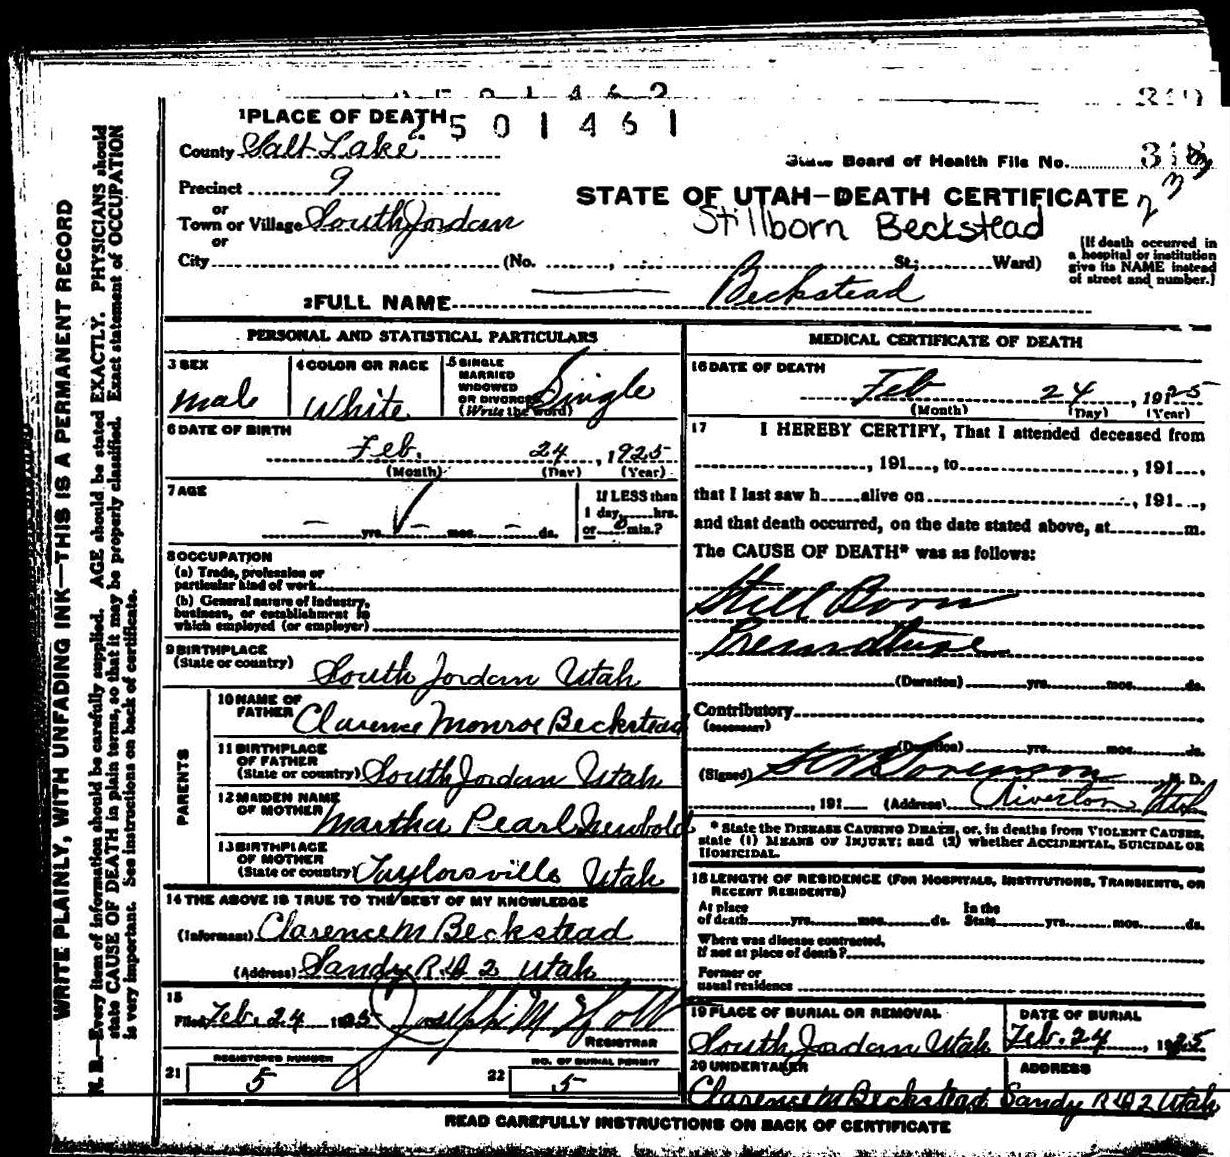 2501462
319
1 PLACE OF DEATH
2501461
County Salt Lake
State Board of Health File No. 318
Precinct 9
STATE OF UTAH—DEATH CERTIFICATE
or
Town or Village South Jordan
Stillborn Beckstead
or
City (No. , St; Ward)
[If death occurred in
a hospital or institution
give its NAME instead
of street and number.]
2 FULL NAME Beckstead
PERSONAL AND STATISTICAL PARTICULARS
3 SEX
male
4 COLOR OR RACE
White
5 SINGLE
MARRIED
WIDOWED
OR DIVORCED
(Write the word)
Single
6 DATE OF BIRTH
Feb. 24, 1925
(Month) (Day) (Year)
7 AGE
– yrs. – mos. – ds.
If LESS than
1 day, hrs.
or 0 min.?
8 OCCUPATION
(a) Trade, profession or
particular kind of work
(b) General nature of industry,
business, or establishment in
which employed (or employer)
9 BIRTHPLACE
(State or country) South Jordan Utah
PARENTS
10 NAME OF
FATHER Clarence Monroe Beckstead
11 BIRTHPLACE
OF FATHER
(State or country) South Jordan Utah
12 MAIDEN NAME
OF MOTHER Martha Pearl Newbold
13 BIRTHPLACE
OF MOTHER
(State or country) Taylorsville Utah
14 THE ABOVE IS TRUE TO THE BEST OF MY KNOWLEDGE
(Informant) Clarence M Beckstead
(Address) Sandy R # 2 Utah
15
Filed Feb. 24 1925 Joseph M Holt
REGISTRAR
21 REGISTERED NUMBER
5
22 NO. OF BURIAL PERMIT
5
MEDICAL CERTIFICATE OF DEATH
16 DATE OF DEATH
Feb 24, 1925
(Month) (Day) (Year)
17 I HEREBY CERTIFY, That I attended deceased from
, 191 , to , 191 ,
that I last saw h alive on , 191 ,
and that death occurred, on the date stated above, at m.
The CAUSE OF DEATH* was as follows:
Still Born
Premature
(Duration) yrs. mos. ds.
Contributory
(SECONDARY)
(Duration) yrs. mos. ds.
(Signed) Sorenson M. D.
, 191 (Address) Riverton Utah
* State the DISEASE CAUSING DEATH, or, in deaths from VIOLENT CAUSES,
state (1) MEANS OF INJURY; and (2) whether ACCIDENTAL, SUICIDAL OR
HOMICIDAL.
18 LENGTH OF RESIDENCE (FOR HOSPITALS, INSTITUTIONS, TRANSIENTS, OR
RECENT RESIDENTS)
At place
of death yrs. mos. ds.
In the
State yrs. mos. ds.
Where was disease contracted,
if not at place of death?
Former or
usual residence
19 PLACE OF BURIAL OR REMOVAL
South Jordan Utah
DATE OF BURIAL
Feb. 24, 1925
20 UNDERTAKER
Clarence M Beckstead
ADDRESS
Sandy R # 2 Utah
READ CAREFULLY INSTRUCTIONS ON BACK OF CERTIFICATE
WRITE PLAINLY, WITH UNFADING INK—THIS IS A PERMANENT RECORD
N. B.—Every item of information should be carefully supplied. AGE should be stated EXACTLY. PHYSICIANS should
state CAUSE OF DEATH in plain terms, so that it may be properly classified. Exact statement of OCCUPATION
is very important. See instructions on back of certificate.